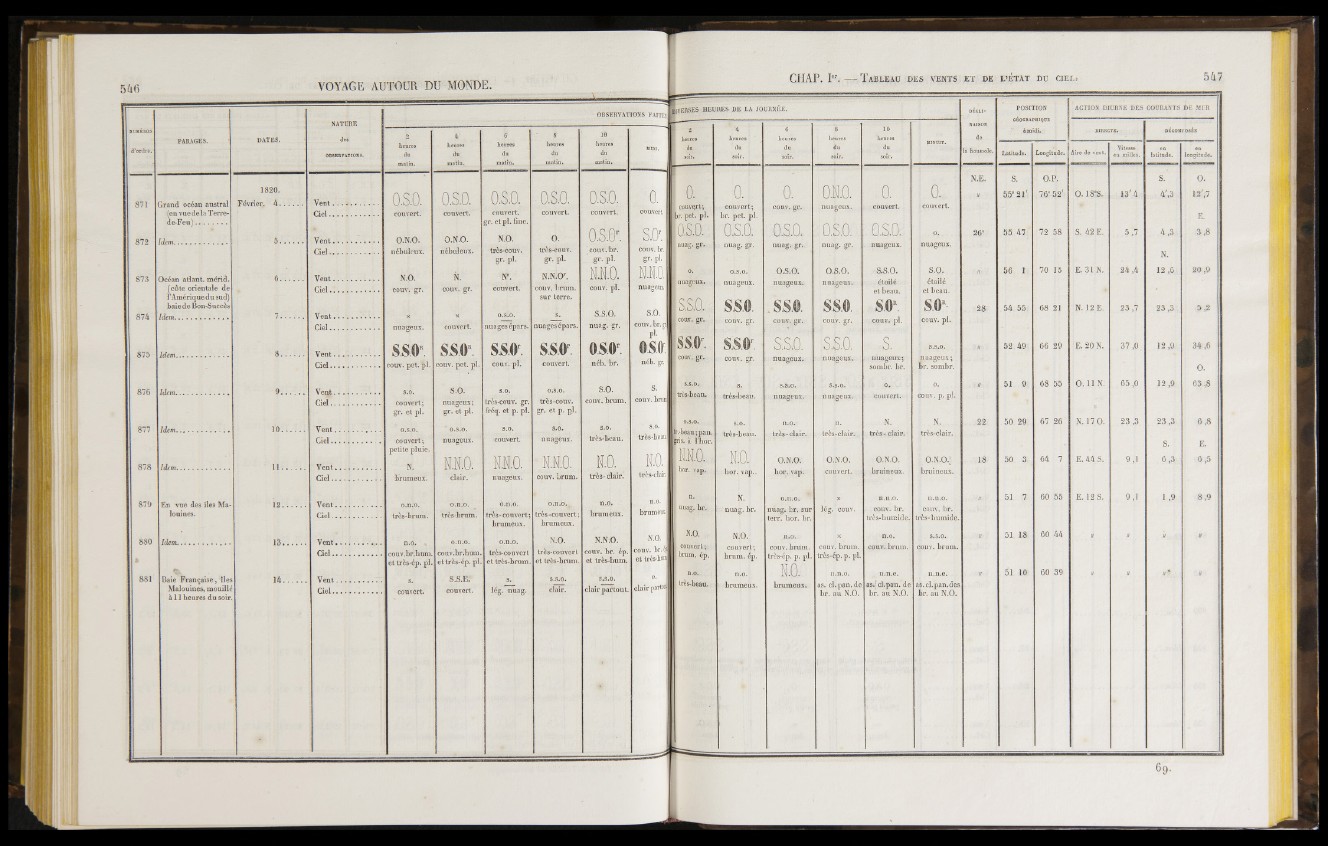 546
VOYAGE AUTOUR DU MONDE.
NUMÉROS d'ordre.
PARAGES.
DATES.
NATURE des OBSERVATIONS.
OBSERVATIONS FAITES
2 heures du matin.
4 heures du matin.
6 heures du matin.
8 heures du matin.
10 heures du matin.
MIDI.
1820.
871 Grand océan austral (en vue de la Terre-de-Feu)........ Février, 4......
Vent............ O.S.O. O.S.O. O.S.O. O.S.O. O.S.O. O.
Ciel............ couvert. couvert. couvert. gr. et pl. fine. couvert. couvert. couvert
872 Idem............. 5......
Vent............ O.N.O. O.N.O. N.O. O. O.S.Oʳ. S.Oʳ.
Ciel............ nébuleux. nébuleux. très-couv. gr. pl. très-couv. gr. pl. couv. br. gr. pl. couv. br. gr. pl.
873 Océan atlant. mérid. (côte orientale de l'Amérique du sud) baie de Bon-Succès 6......
Vent............ N.O. N. Nʳ. N.N.Oʳ. N.N.O. N.N.O
Ciel............ couv. gr. couv. gr. couvert. couv. brum. sur terre. couv. pl. nuageux
874 Idem............. 7......
Vent............ « « O.S.O. S. S.S.O. S.O.
Ciel............ nuageux. couvert. nuages épars. nuages épars. nuag. gr. couv. br. gr. pl.
875 Idem............. 8......
Vent............ SSOⁿ. SSOⁿ. SSOʳ. SSOʳ. OSOʳ. OSOʳ.
Ciel............ couv. pet. pl. couv. pet. pl. couv. pl. couvert. néb. br. néb. gr.
876 Idem............. 9......
Vent............ s.o. S.O. s.o. o.s.o. S.O. S.
Ciel............ couvert; gr. et pl. nuageux; gr. et pl. très-couv. gr. fréq. et p. pl. très-couv. gr. et p. pl. couv. brum. couv. brum
877 Idem............. 10......
Vent............ o.s.o. o.s.o. s.o. s.o. s.o. s.o.
Ciel............ couvert; petite pluie. nuageux. couvert. nuageux. très-beau. très-beau
878 Idem............. 11......
Vent............ N. N.N.O. N.N.O. N.N.O. N.O. N.O.
Ciel............ brumeux. clair. nuageux. couv. brum. très-clair. très-clair
879 En vue des îles Malouines. 12......
Vent............ o.n.o. o.n.o. o.n.o. o.n.o. n.o. n.o.
Ciel............ très-brum. très-brum. très-couvert; brumeux. très-couvert; brumeux. brumeux. brumeux
880 Idem............. 13......
Vent............ n.o. o.n.o. o.n.o. N.O. N.N.O. N.O.
Ciel............ couv. br. hum. et très-ép. pl. couv. br. hum. et très-ép. pl. très-couvert et très-brum. très-couvert et très-brum. couv. br. ép. et très-hum. couv. br. ép. et très-hum.
881 Baie Française, îles Malouines, mouillé à 11 heures du soir. 14......
Vent............ s. S.S.E. s. s.s.o. s.s.o. o.
Ciel............ couvert. couvert. lég. nuag. clair. clair partout. clair partout
CHAP. Iᵉʳ. — TABLEAU DES VENTS ET DE L'ÉTAT DU CIEL. 547
DIVERSES HEURES DE LA JOURNÉE.
2 heures du soir.
4 heures du soir.
6 heures du soir.
8 heures du soir.
10 heures du soir.
MINUIT.
DÉCLINAISON de la boussole.
POSITION GÉOGRAPHIQUE à midi.
Latitude. Longitude.
ACTION DIURNE DES COURANTS DE MER
DIRECTE. DÉCOMPOSÉE
Aire de vent. Vitesse en milles. en latitude. en longitude.
N.E. S. O.P. S. O.
O. O. O. O.N.O. O. O. " 55° 21' 76° 52' O. 18°S. 13',4 4',3 12',7
couvert; br. pet. pl. couvert; br. pet. pl. couv. gr. nuageux. couvert. couvert.
E.
O.S.O. O.S.O. O.S.O. O.S.O. O.S.O. o. 26° 55 47 72 58 S. 42 E. 5,7 4,3 3,8
nuag. gr. nuag. gr. nuag. gr. nuag. gr. nuageux. nuageux.
N.
o. o.s.o. O.S.O. O.S.O. S.S.O. S.O. " 56 1 70 15 E. 31 N. 24,4 12,6 20,9
nuageux. nuageux. nuageux. nuageux. étoilé et beau. étoilé et beau.
S.S.O. SSO. SSO. SSO. SOⁿ. SOⁿ. 28 54 55 68 21 N. 12 E. 23,7 23,3 5,2
couv. gr. couv. gr. couv. gr. couv. gr. couv. pl. couv. pl.
SSOʳ. SSOʳ S.S.O. S.S.O. S. s.s.o. " 52 49 66 29 E. 20 N. 37,0 12,9 34,6
couv. gr. couv. gr. nuageux. nuageux. nuageux; sombr. br. nuageux; br. sombr.
O.
s.s.o. s. s.s.o. s.s.o. o. o. " 51 9 68 55 O. 11 N. 65,0 12,9 63,8
très-beau. très-beau. nuageux. nuageux. couvert. couv. p. pl.
s.s.o. s.o. n.o. n. N. N. 22 50 29 67 26 N. 17 O. 23,3 23,3 6,8
tr.-beau; pan. gris. à l'hor. très-beau. très-clair. très-clair. très-clair. très-clair.
S. E.
N.N.O. N.O. O.N.O. O.N.O. O.N.O. O.N.O. 18 50 3 64 7 E. 44 S. 9,1 6,3 6,5
hor. vap. hor. vap. hor. vap. couvert. bruineux. bruineux.
n. N. n.n.o. « n.n.o. n.n.o. " 51 7 60 55 E. 12 S. 9,1 1,9 8,9
nuag. br. nuag. br. nuag. br. sur terr. hor. br. lég. couv. couv. br. très-humide. couv. br. très-humide.
N.O. N.O. n.o. « n.o. s.s.o. " 51 18 60 44 " " " "
couvert; brum. ép. couvert; brum. ép. couv. brum. très-ép. p. pl. couv. brum. très-ép. p. pl. couv. brum. couv. brum.
n.o. n.o. N.O. n.n.o. n.n.e. n.n.e. " 51 40 60 39 " " " "
très-beau. brumeux. brumeux. as. cl. pan. de br. au N.O. as. cl. pan. de br. au N.O. as. cl. pan. des br. au N.O.
69.